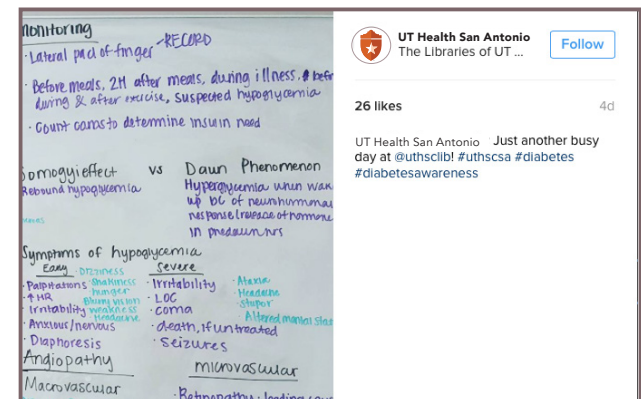 monitoring
· Lateral pad of finger - RECORD
· Before meals, 2H after meals, during illness,
during & after exercise, suspected hypoglycemia
· Count carbs to determine insulin need
Somogyi effect vs Dawn Phenomenon
Rebound hypoglycemia
Hyperglycemia when wak
up bc of neurohumonal
response (release of hormone
in predawn hrs
Symptoms of hypoglycemia
Early
· Palpitations
· ↑HR
· Irritability
· Anxious/nervous
· Diaphoresis
· Dizziness
Shakiness
hunger
Blurry vision
weakness
Headache
Severe
· Irritability
· LOC
· coma
· death, if untreated
· Seizures
· Ataxia
· Headache
· Stupor
· Altered mental stat
Angiopathy
Macrovascular
microvascular
UT Health San Antonio
The Libraries of UT ...
Follow
26 likes
4d
UT Health San Antonio Just another busy
day at @uthsclib! #uthscsa #diabetes
#diabetesawareness